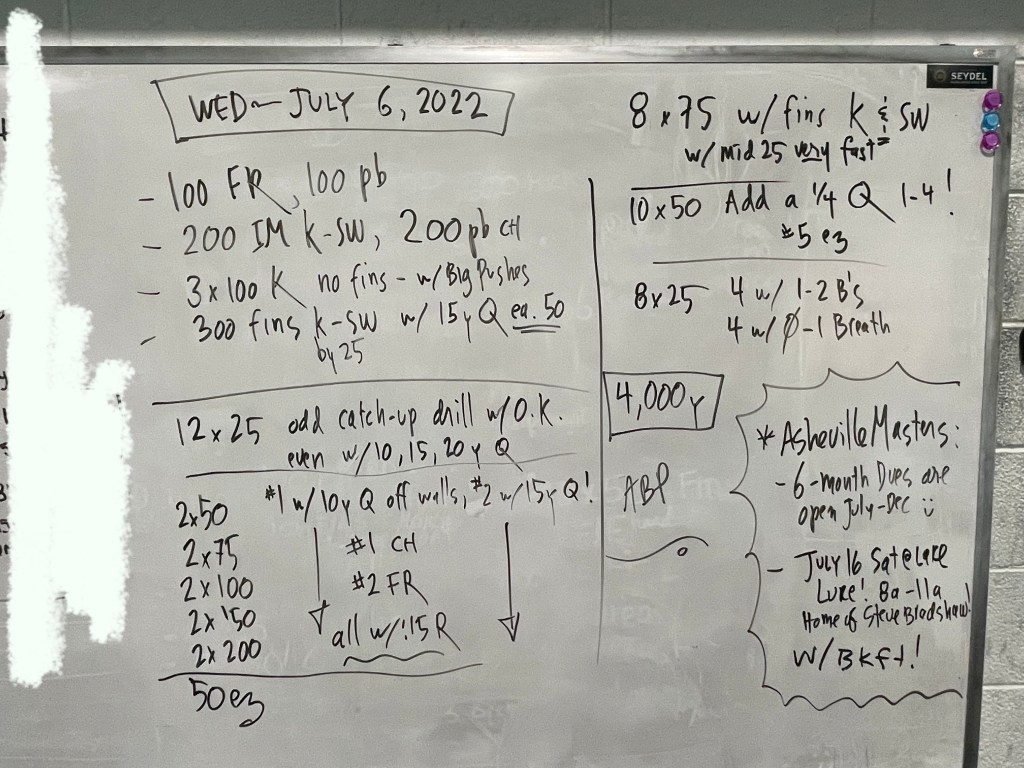 WED~JULY 6, 2022
- 100 FR, 100 pb
- 200 IM K-SW, 200 pb CH
- 3 x 100 K no fins - w/ Big Pushes
- 300 fins K-SW w/ 15y Q ea. 50
by 25
12 x 25 odd catch-up drill w/ O.K.
even w/ 10, 15, 20 y Q
2x50 #1 w/ 10y Q off walls, #2 w/ 15y Q!
2 x 75 #1 CH
2 x 100 #2 FR
2 x 150 all w/ :15 R
2 x 200
50 ez
SEYDEL
8 x 75 w/ fins K & SW
w/ mid 25 very fast
10 x 50 Add a 1/4 Q 1-4!
#5 ez
8 x 25 4 w/ 1-2 B's
4 w/ Ø-1 Breath
4,000y
ABP
* Asheville Masters:
- 6-month Dues are
open July-Dec
- July 16 Sat @ Lake
Lure! 8a-11a
Home of Steve Bradshaw!
w/ Bkft!